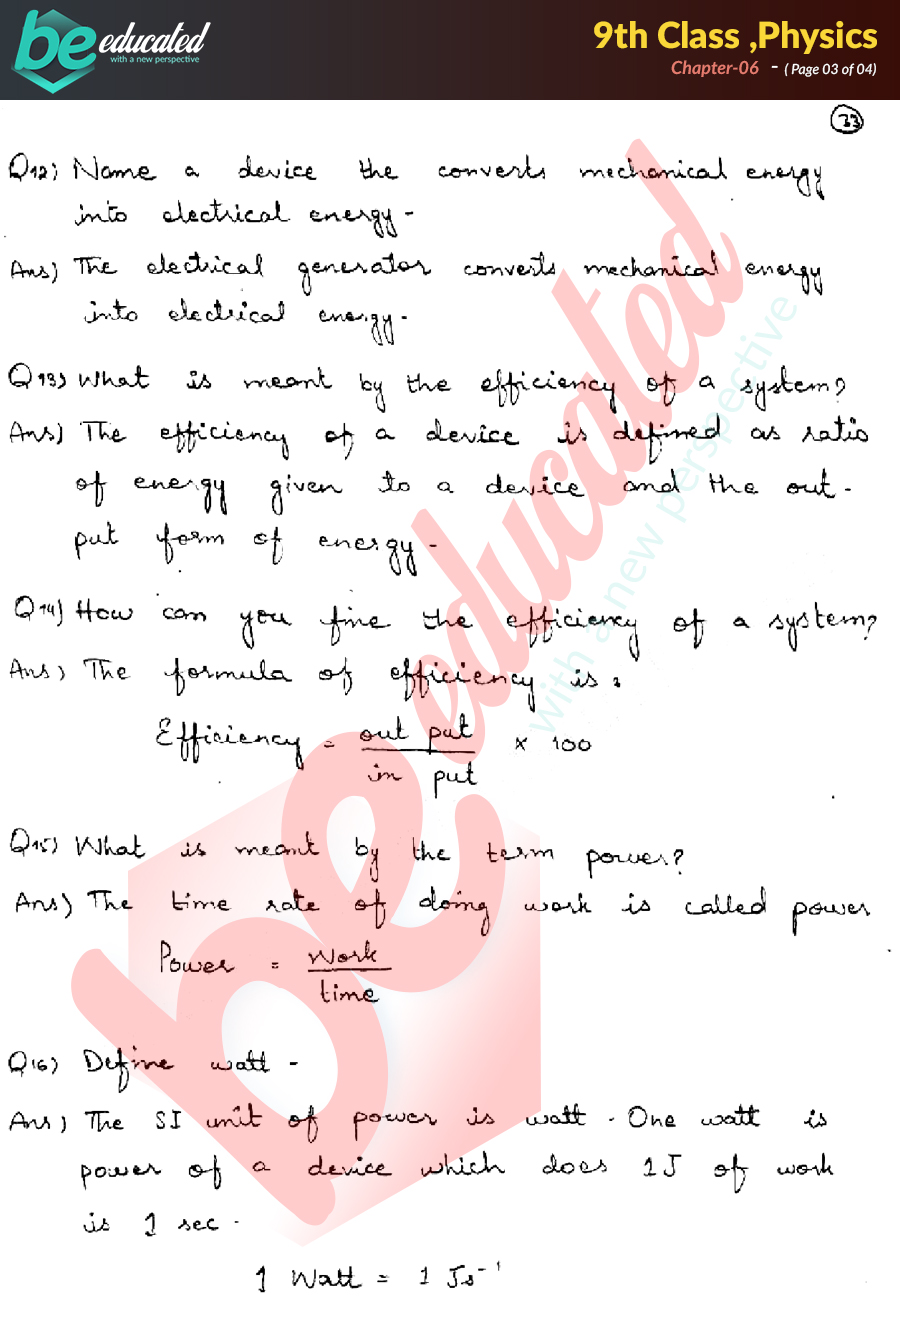 be educated
with a new perspective
9th Class ,Physics
Chapter-06 - ( Page 03 of 04)
33
Q12) Name a device the converts mechanical energy
into electrical energy -
Ans) The electrical generator converts mechanical energy
into electrical energy.
Q13) What is meant by the efficiency of a system?
Ans) The efficiency of a device is defined as ratio
of energy given to a device and the out-
put form of energy -
Q14) How can you fine the efficiency of a system?
Ans) The formula of efficiency is:
Efficiency = out put / in put × 100
Q15) What is meant by the term power?
Ans) The time rate of doing work is called power
Power = Work / time
Q16) Define watt -
Ans) The SI unit of power is watt. One watt is
power of a device which does 1J of work
is 1 sec.
1 Watt = 1 Js⁻¹
be educated
with a new perspective